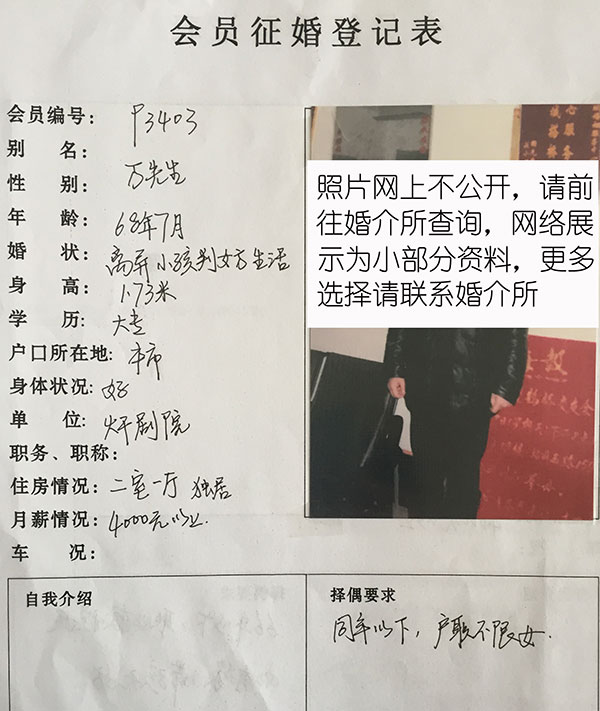 会员征婚登记表
会员编号: P3403
别 名:
性 别: 万先生
年 龄: 68年7月
婚 状: 离异 小孩判女方生活
身 高: 1.73米
学 历: 大专
户口所在地: 本市
身体状况: 好
单 位: 剧院
职务、职称:
住房情况: 二室一厅 独居
月薪情况: 4000元以上.
车 况:
照片网上不公开，请前
往婚介所查询，网络展
示为小部分资料，更多
选择请联系婚介所
自我介绍
择偶要求
同年以下，户职不限女.